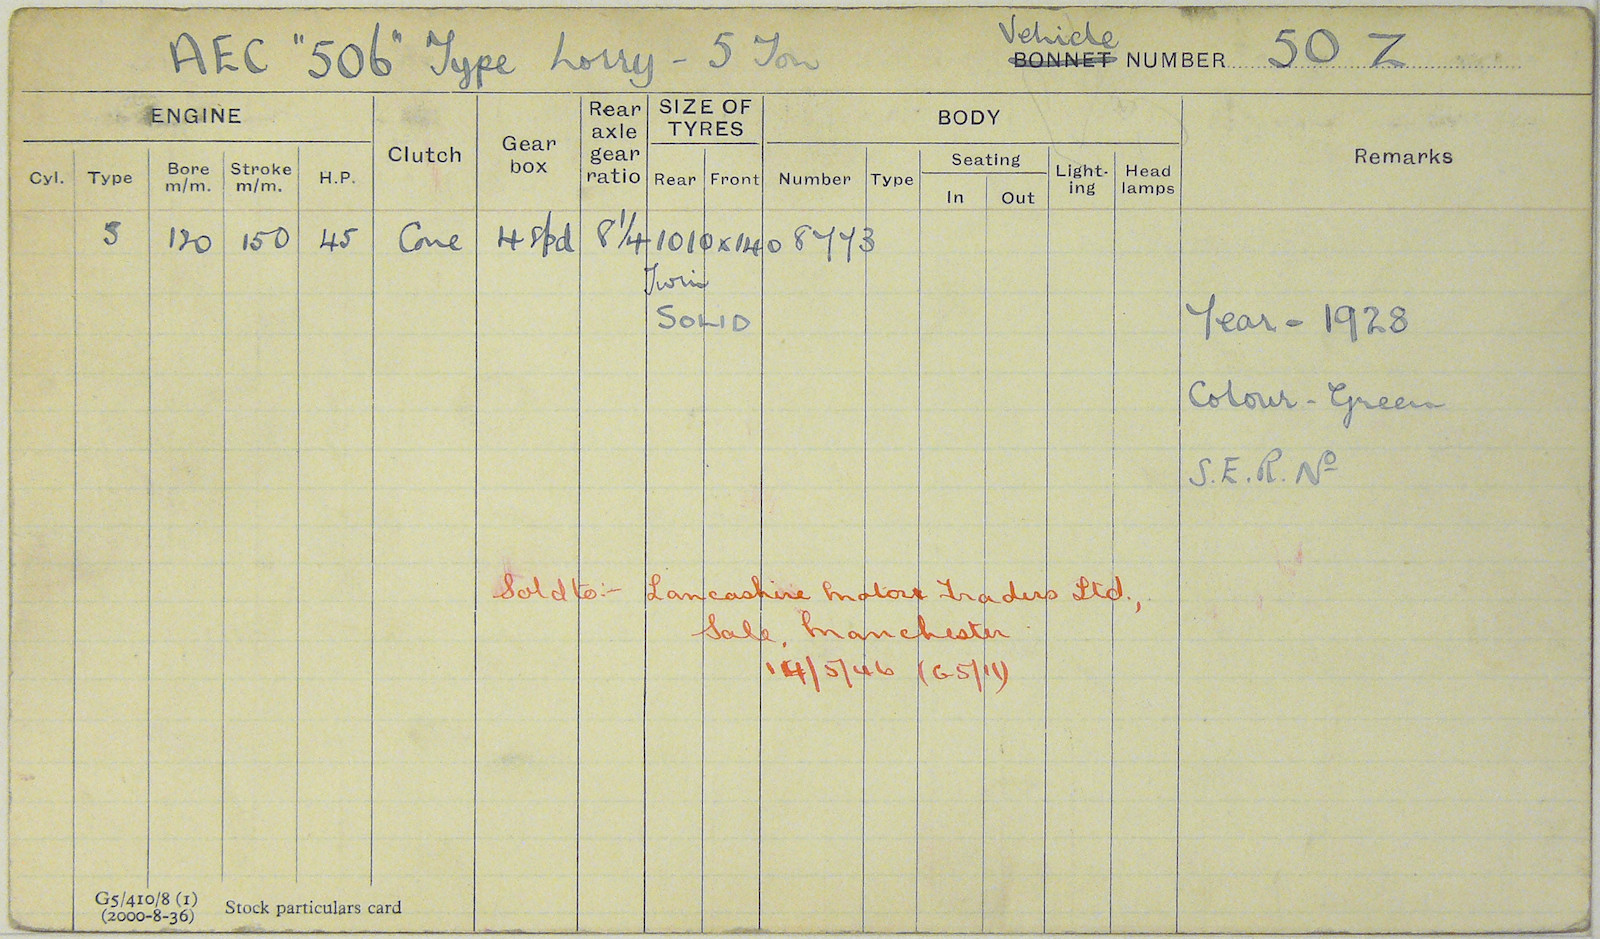 AEC "506" Type Lorry - 5 Ton
Vehicle
BONNET NUMBER 50 Z
ENGINE
Clutch
Gear box
Rear axle gear ratio
SIZE OF TYRES
BODY
Remarks
Cyl. Type Bore m/m. Stroke m/m. H.P.
Rear Front
Number Type Seating In Out Light-ing Head lamps
5 120 150 45 Cone 4 Spd 8 1/4 1010 x 140 8773
Twin
SOLID
Year - 1928
Colour - Green
S.E.R. Nº
Sold to:- Lancashire Motor Traders Ltd.,
Sale, Manchester
14/5/46 (G5/11)
G5/410/8 (1)
(2000-8-36)
Stock particulars card